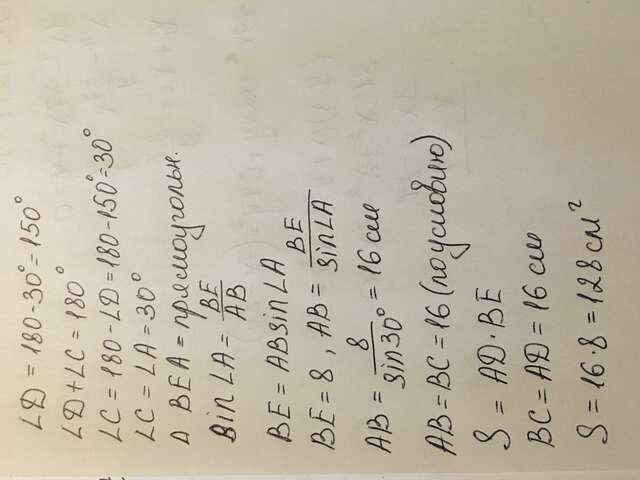 ∠D = 180-30° = 150°
∠D + ∠C = 180°
∠C = 180 - ∠D = 180 - 150° = 30°
∠C = ∠A = 30°
Δ BEA = прямоугольн.
sin∠A = BE/AB
BE = AB sin∠A
BE = 8, AB = BE/sin∠A
AB = 8/sin30° = 16 см
AB = BC = 16 (по условию)
S = AD · BE
BC = AD = 16 см
S = 16 · 8 = 128 см²